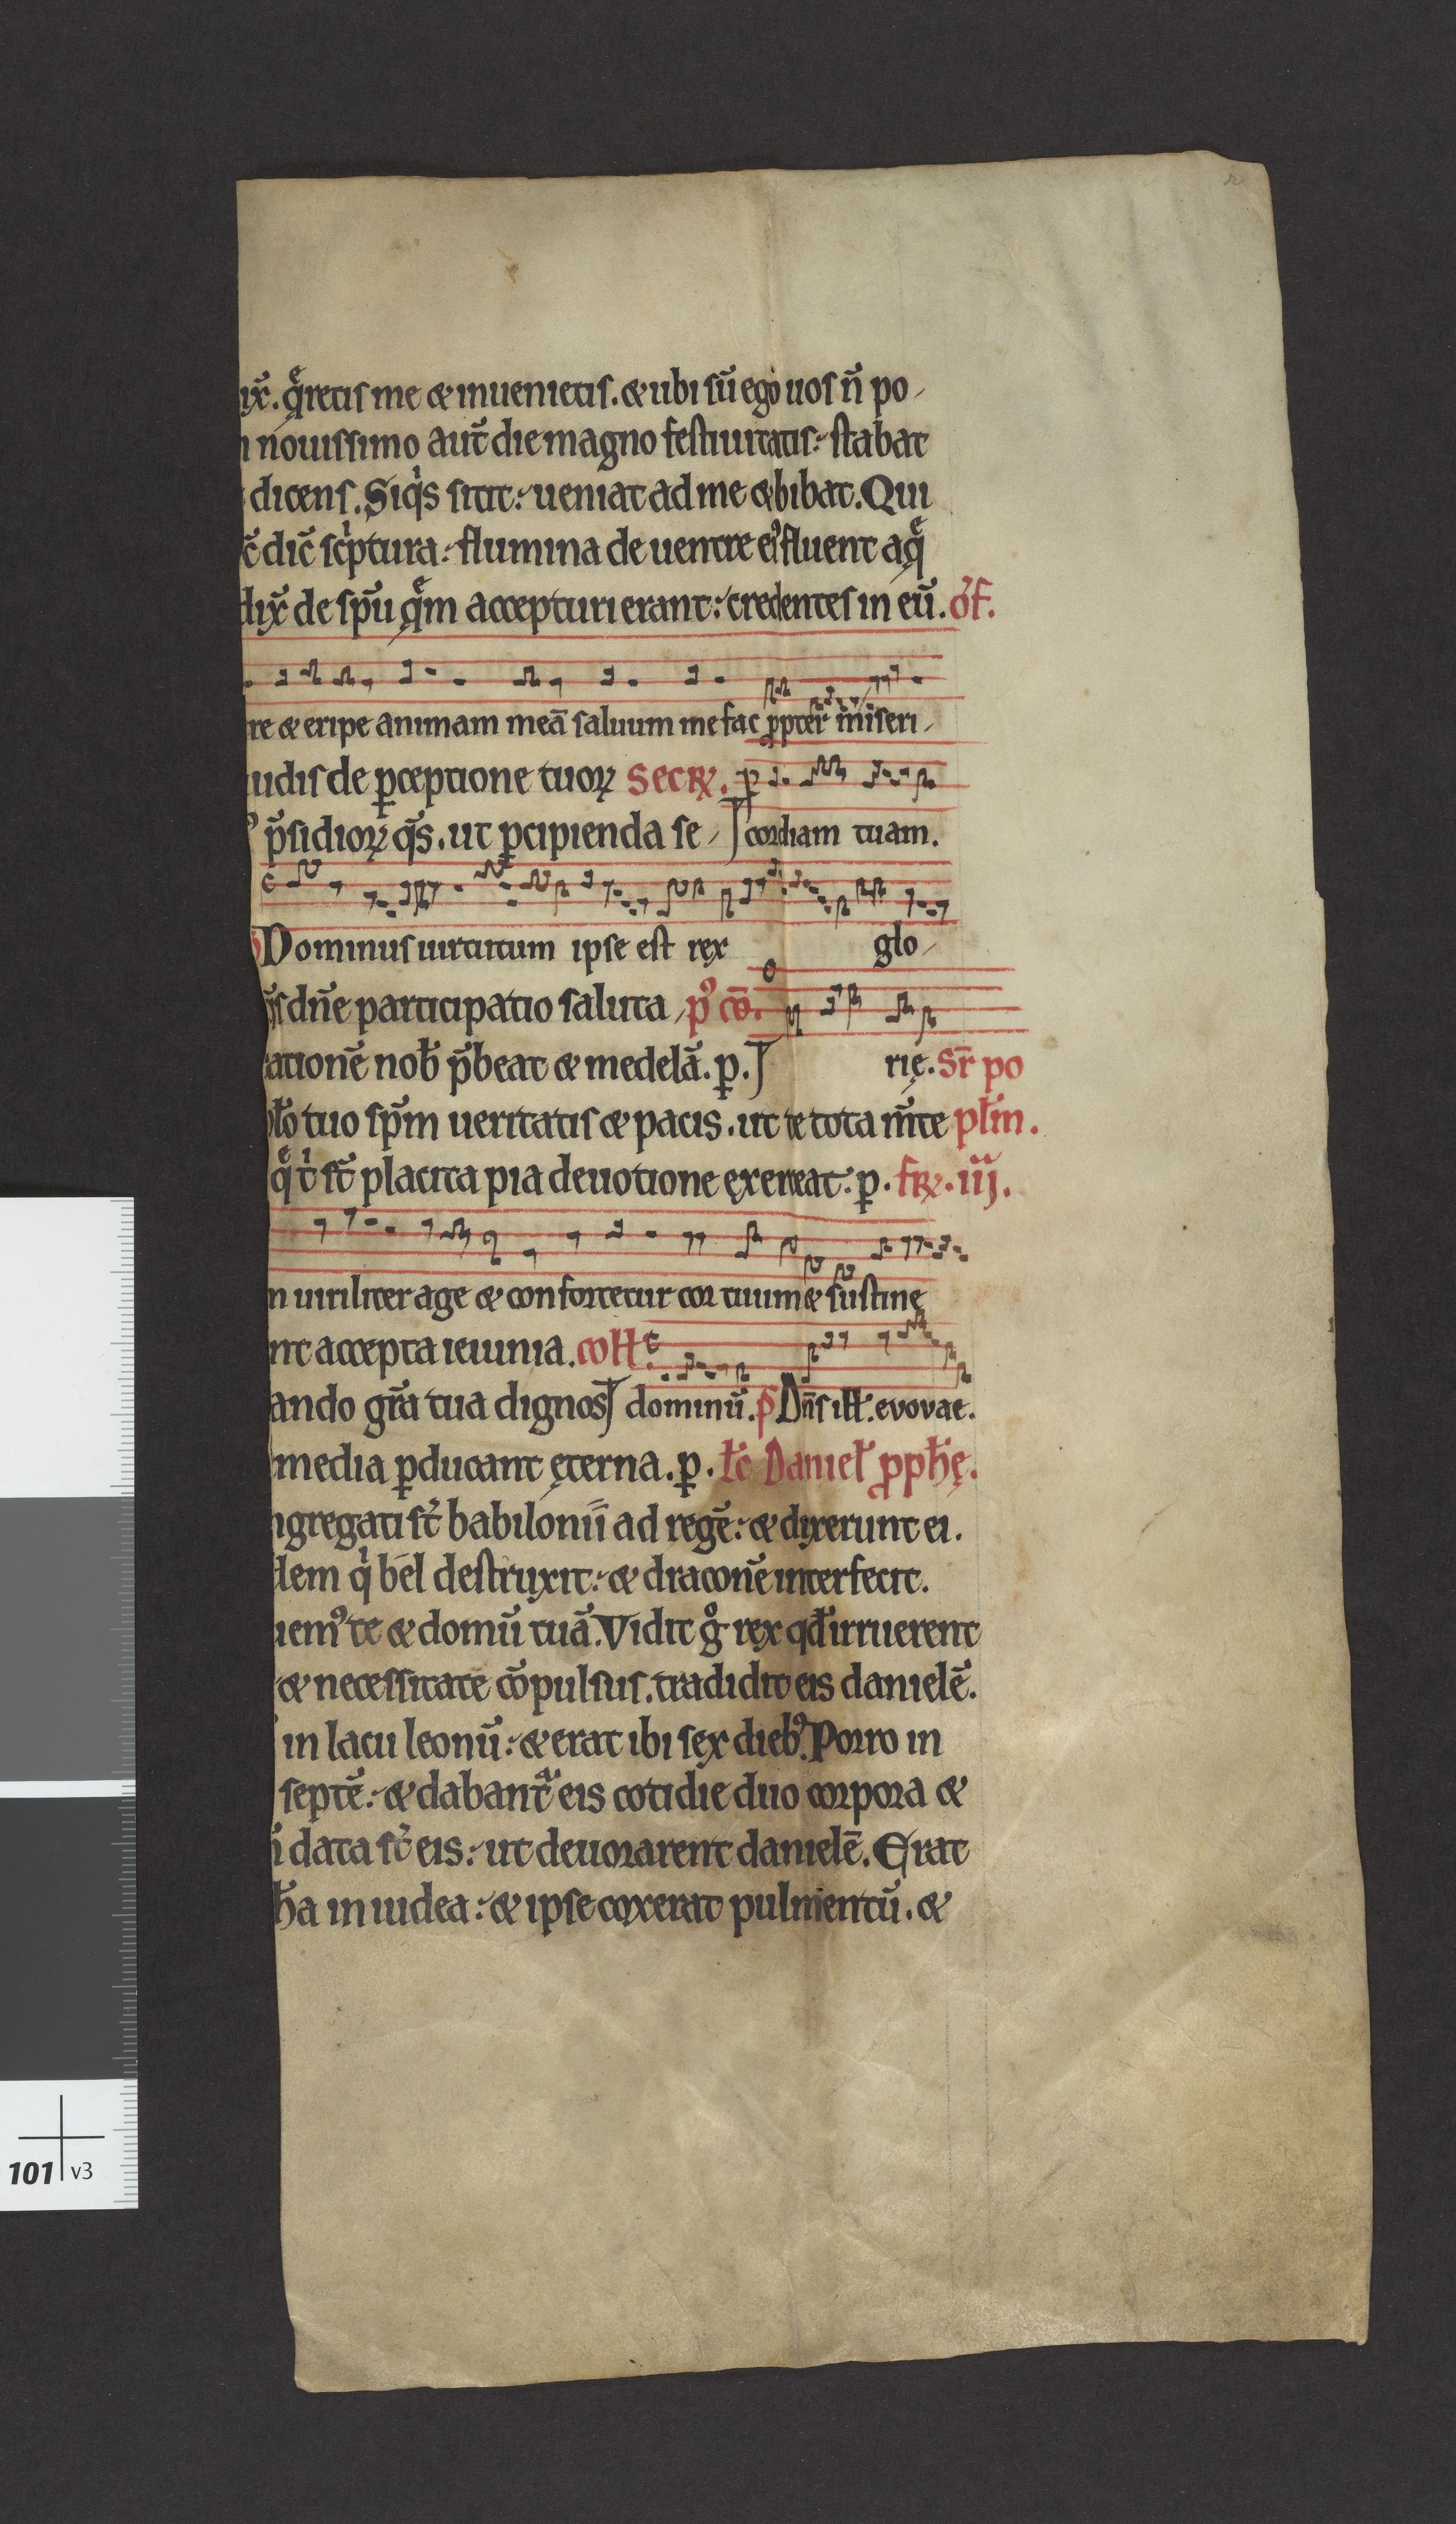 ix̄. q̄retis me & inuenietis. & ubi sū ego uos n̄ po-
nouissimo aut̄ die magno festiuitatis: stabat
dicens. Siq's sitit: ueniat ad me & bibat. Qui
dic̄ scͥptura: flumina de uentre ei' fluent aq̄
dix̄ de spū q̄m accepturi erant: credentes in eū. of.
re & eripe animam meā saluum me fac ꝓpter miseri-
udis de ꝑceptione tuoꝝ Secꝝ.
p̄sidioꝝ q̄s. ut ꝑcipienda se- cordiam tuam.
Dominus uirtutum ipse est rex glo-
dn̄e participatio saluta- p' cō.
ationē nob̄ p̄beat & medelā. ꝑ. rię. Sr̄ po
tuo sp̄m ueritatis & pacis. ut te tota m̄te pl̄m.
q̄ t' st̄ placita pia deuotione exerceat. ꝑ. frꝝ. iij.
n uiriliter age & confortetur cor tuum & sustine
nt accepta ieiunia. coll̄.
ando gr̄a tua dignos dominū. p̄ Dn̄s ill̄. evovae.
media ꝑducant ęterna. ꝑ. l̄c Daniel̄ ꝓph̄ę.
ngregati st̄ babilonii ad regē: & dixerunt ei.
qͥ bel destruxit: & draconē interfecit.
iem' te & domū tuā. Vidit gͦ rex qđ irruerent
& necessitate cōpulsus. tradidit eis danielē.
in lacu leonū: & erat ibi sex dieb'. Porro in
septē: & dabant̄ eis cotidie duo corpora &
data st̄ eis: ut deuorarent danielē. Erat
h̄a in iudea: & ipse coxerat pulmentū. &
101 v3